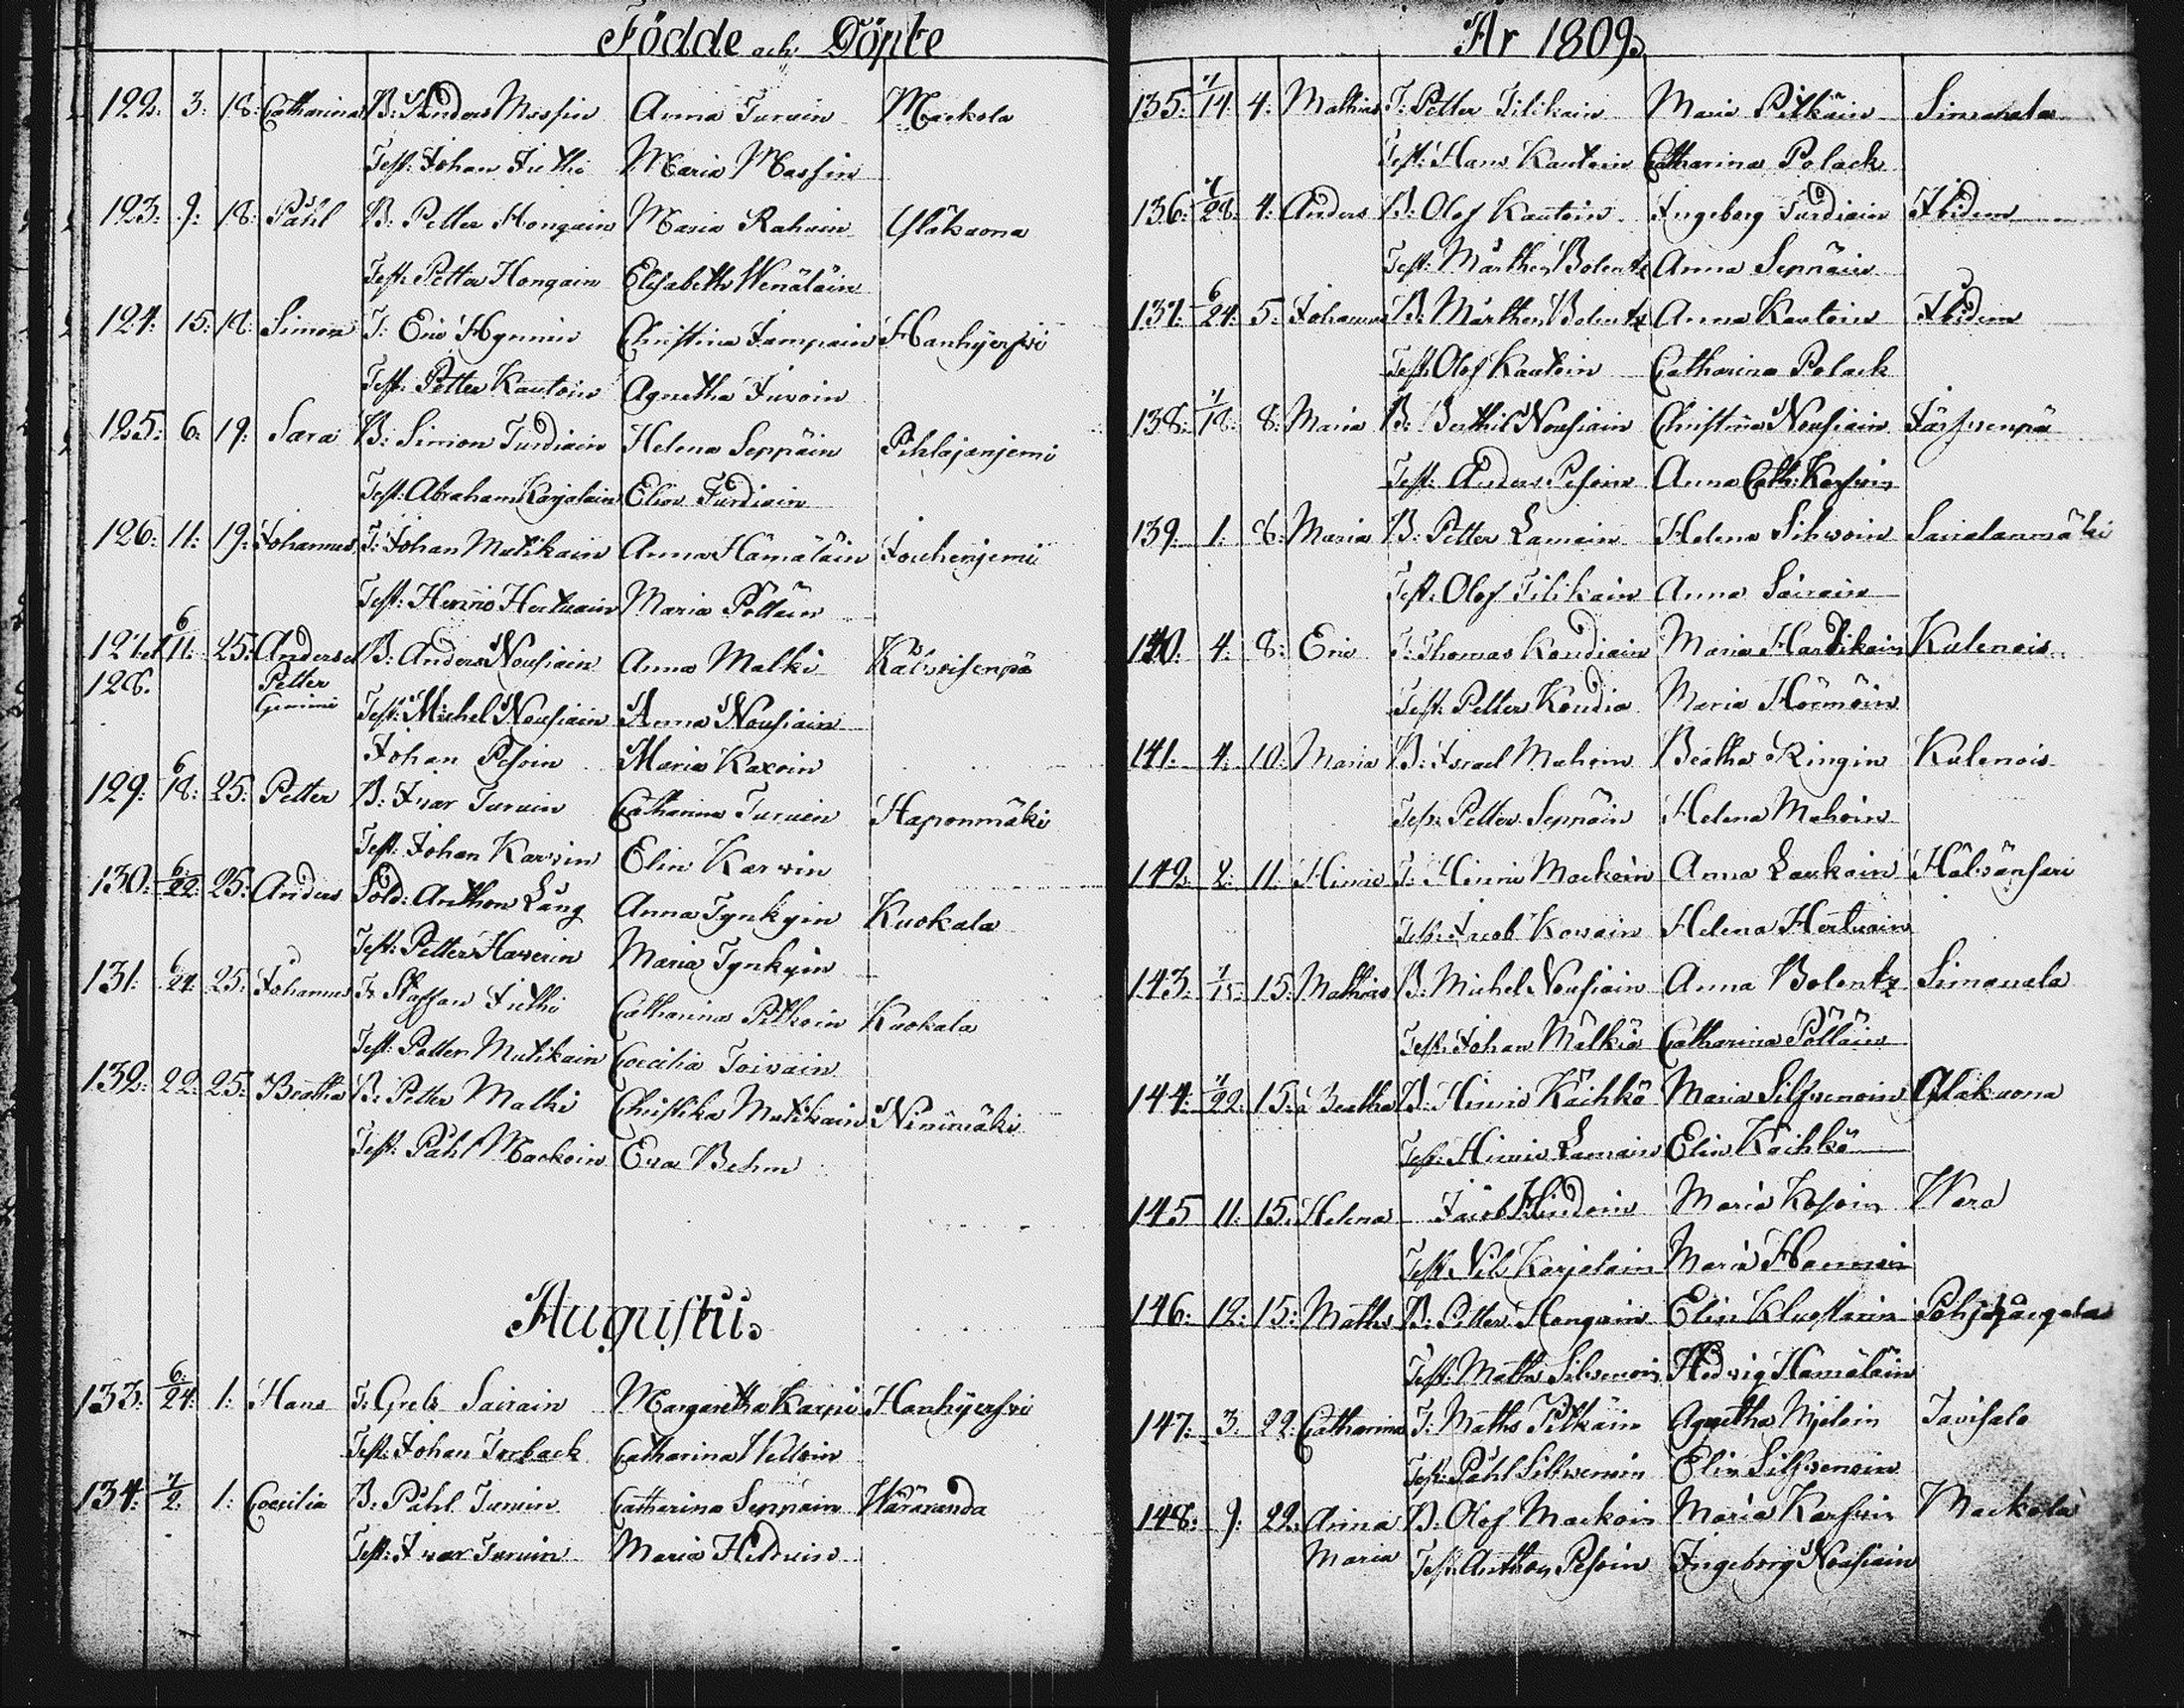 Födde och Döpte
122. 3. 18. Catharina B: Anders Massin Anna Turuin Mackola
Test: Johan Juthi Maria Massin
123. 9. 18. Påhl B: Petter Hongain Maria Rahuin Yläkuona
Test: Petter Hongain Elisabeth Wenäläin
124. 15. 18. Simon T: Eric Hynnin Christina Jampain Hanhijerfvi
Test: Petter Kautoin Agnetha Juvoin
125. 6. 19. Sara B: Simon Turdiain Helena Seppäin Pihlajanjemi
Test: Abraham Karjalain Elin Turdiain
126. 11. 19. Johannes T: Johan Mutikain Anna Hämäläin Jouhenjemi
Test: Henric Hertuain Maria Pölläin
127. et 6/11. 25. Anders et B: Anders Nousiain Anna Malki
128. Petter
Gemini Test: Michel Nousiain Anna Nousiain
Johan Pesoin Maria Kaxoin
129. 6/18. 25. Petter B: Ivar Turuin Catharina Turuin Haponmäki
Test: Johan Karvin Elin Karvin
130. 6/22. 25. Anders Sold: Anthon Lång Anna Tynkyin Kuokala
Test: Petter Haverin Maria Tynkyin
131. 6/24. 25. Johannes T: Staffan Juthi Catharina Pitkäin Kuokala
Test: Petter Mutikain Coecilia Toivain
132. 22. 25. Beatha B: Petter Malki Christina Mutikain Ninimäki
Test: Påhl Mackoin Eva Behm
Augustus
133. 6/24. 1. Hans T: Grels Sairain Margaretha Karpi Hanhijerfvi
Test: Johan Torback Catharina Welloin
134. 7/2. 1. Coecilia B: Påhl Turuin Catharina Seppäin Wäräranda
Test: Ivar Turuin Maria Hilduin
År 1809.
135. 7/14. 4. Mathias T: Petter Tilikain Maria Pitkäin Simanala
Test: Hans Kautoin Catharina Polack
136. 7/28. 4. Anders B: Olof Kautoin Ingeborg Turdiain Ibidem
Test: Mårthen Bolentz Anna Seppäin
137. 6/24. 5. Johannes B: Mårthen Bolentz Anna Kautoin Ibidem
Test: Olof Kautoin Catharina Polack
138. 7/18. 8. Maria B: Berthil Nousiain Christina Nousiain Järfvenpä
Test: Anders Pesoin Anna Cath: Karfvin
139. 1. 8. Maria B: Petter Lamain Helena Sihvoin Sairalanmäki
Test: Olof Tilikain Anna Sairain
140. 4. 8. Eric T: Thomas Koudiain Maria Hartikain Kulenois
Test: Petter Koudia Maria Hörmöin
141. 4. 10. Maria B: Israel Muhoin Beatha Ringin Kulenois
Test: Petter Seppäin Helena Muhoin
142. 2. 11. Hinric T: Hinric Mackoin Anna Laukain Hälvänsari
Test: Jacob Kovain Helena Hertuain
143. 7/15. 15. Mathias B: Michel Nousiain Anna Bolentz Simanala
Test: Johan Mälkiä Catharina Pölläin
144. 7/22. 15. Beatha B: Hinric Käihkö Maria Silfvenoin Yläkuona
Test: Hinric Lamain Elin Käihkö
145 11. 15. Helena Jacob Maria Kosoin Wara
Test: Nils Karjalain Maria
146. 12. 15. Maths B: Petter Hongain Elin
Test: Maths Silvenoin Hedvig Hämäläin
147. 3. 22. Catharina T: Maths Pitkäin Agnetha Mielain Tavisalo
Test: Påhl Silfvenoin Elin Silfvenoin
148. 9. 22. Anna B: Olof Mackoin Maria Karfvin Mackola
Maria Test: Anthon Pesoin Ingeborg Nousiain